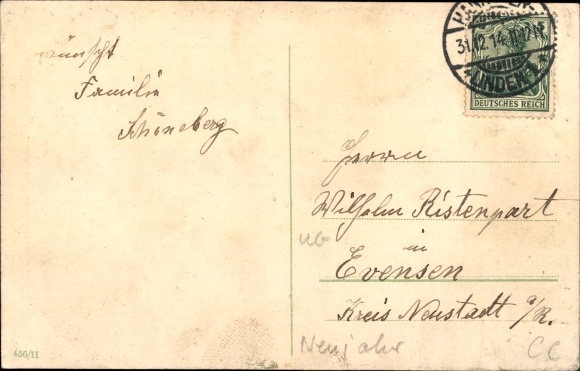 wünscht
Familie
Schöneberg
HANNOVER
31.12.14.
LINDEN
DEUTSCHES REICH
Herrn
Wilhelm Ristenpart
in
Evensen
Kreis Neustadt a/R.
Neujahr
CC
456/II